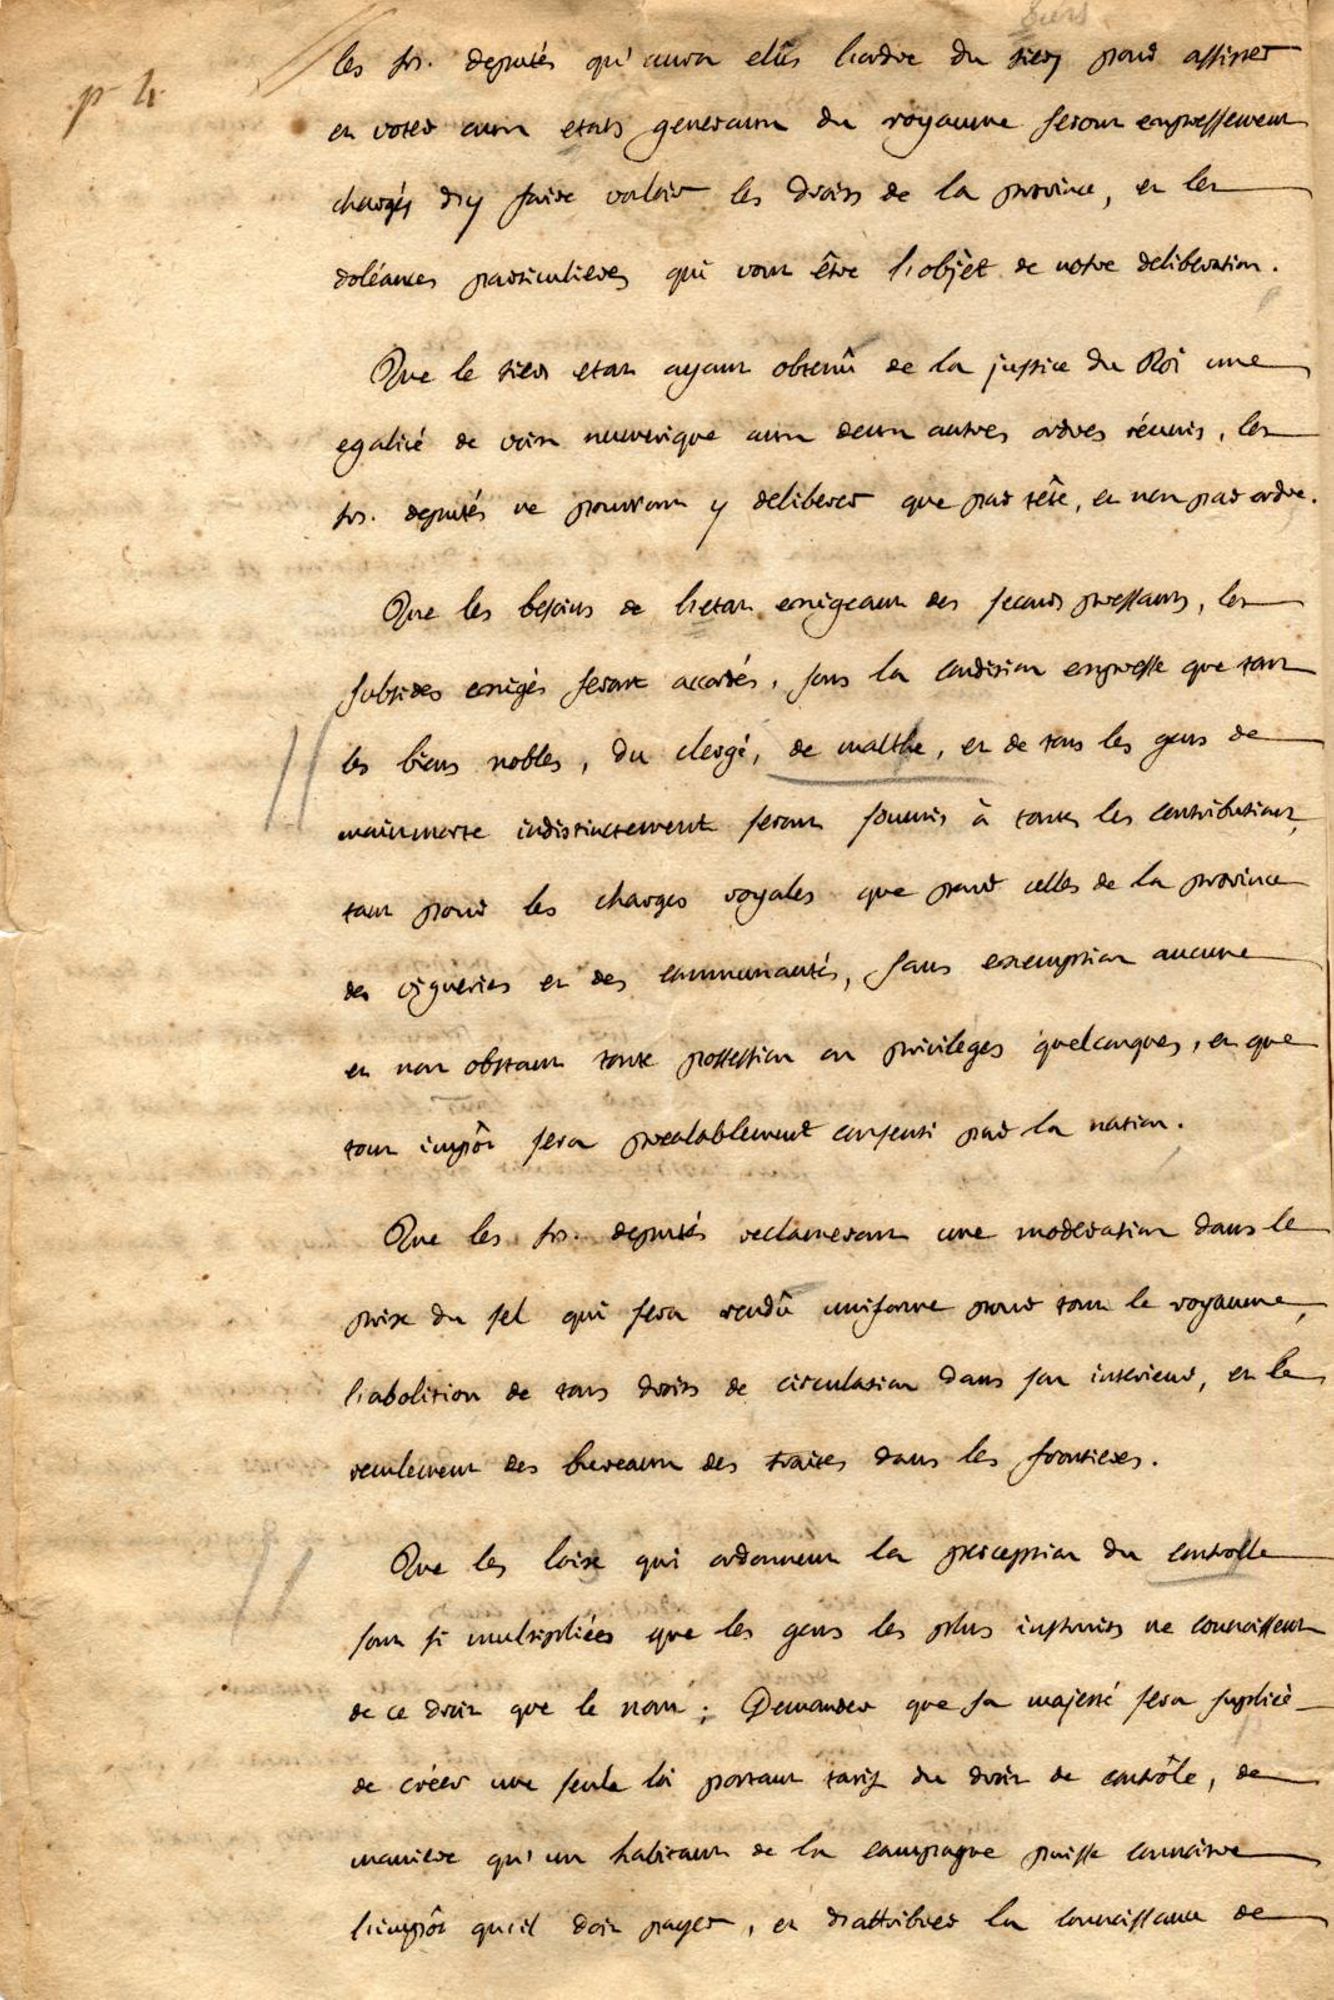 tiers
p 4
les srs. deputés qu'aura elûs l'ordre du tiers pour assister
et voter aux etats generaux du royaume seront expressement
chargés d'y faire valoir les droits de la province, et les
doléances particulieres qui vont être l'objèt de notre deliberation.
Que le tiers etat ayant obtenû de la justice du Roi une
egalité de voix numerique aux deux autres ordres réunis, les
srs. deputés ne pourront y deliberer que par tête, et non par ordre.
Que les besoins de l'etat exigeant des secours pressants, les
subsides exigès seront accordés, sous la condition expresse que tous
les biens nobles, du clergé, de malthe, et de tous les gens de
mainmorte indistinctement seront soumis à toutes les contributions,
tant pour les charges royales que pour celles de la province
des vigueries et des communautés, sans exemption aucune
et non obstant toute possession ou privileges quelconques, et que
tout impôt sera prealablement consenti par la nation.
Que les srs. deputés reclameront une moderation dans le
prix du sel qui sera rendû uniforme pour tout le royaume,
l'abolition de tous droits de circulation dans son interieur, et le
reculement des bureaux des traites dans les frontieres.
Que les loix qui ordonnent la perception du controlle
sont si multipliées que les gens les plus instruits ne connoissent
de ce droit que le nom; Demander que sa majesté sera supliée
de créer une seule loi portant tarif du droit de contrôle, de
maniere qu'un habitant de la campagne puisse connoitre
l'impôt qu'il doit payer, et d'attribuer la connoissance de